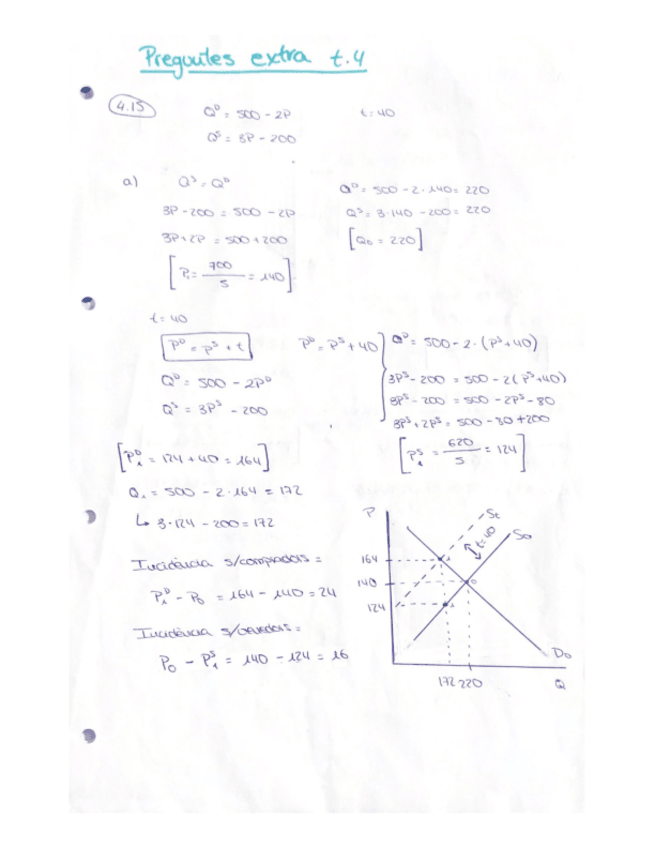 Preguntes extra t.4
4.15
Q^D = 500 - 2P
t = 40
Q^S = 3P - 200
a) Q^S = Q^D
3P - 200 = 500 - 2P
3P + 2P = 500 + 200
[P₀ = 700/5 = 140]
Q^D = 500 - 2·140 = 220
Q^S = 3·140 - 200 = 220
[Q₀ = 220]
t = 40
P^D = P^S + t
Q^D = 500 - 2P^D
Q^S = 3P^S - 200
P^D = P^S + 40
Q^D = 500 - 2·(P^S + 40)
3P^S - 200 = 500 - 2(P^S + 40)
3P^S - 200 = 500 - 2P^S - 80
3P^S + 2P^S = 500 - 80 + 200
[P₁^S = 620/5 = 124]
[P₁^D = 124 + 40 = 164]
Q₁ = 500 - 2·164 = 172
↳ 3·124 - 200 = 172
Incidència s/compradors =
P₁^D - P₀ = 164 - 140 = 24
Incidència s/venedors =
P₀ - P₁^S = 140 - 124 = 16
P
St
t=40
S₀
164
140
0
124
D₀
172 220
Q